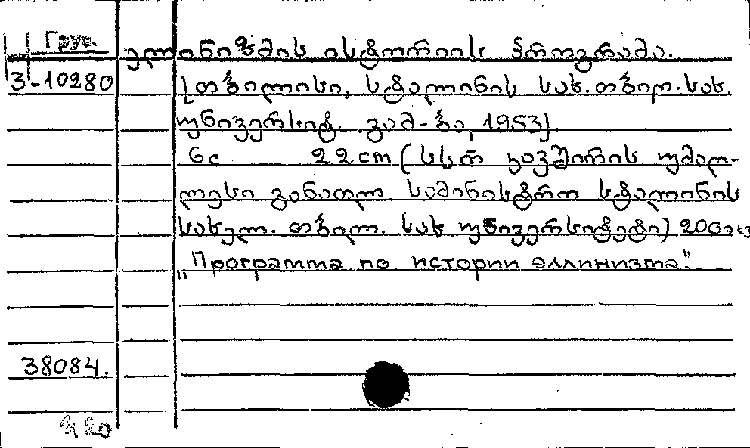 Груз.
ელინიზმის ისტორიის პროგრამა.
3-10280 [თბილისი, სტალინის სახ. თბილ. სახ.
უნივერსიტ. გამ-ბა, 1953].
6с 22 cm (სსრ კავშირის უმაღ-
ლესი განათლ. სამინისტრო სტალინის
სახელ. თბილ. სახ უნივერსიტეტი) 200
„Программа по истории эллинизма".
38084.